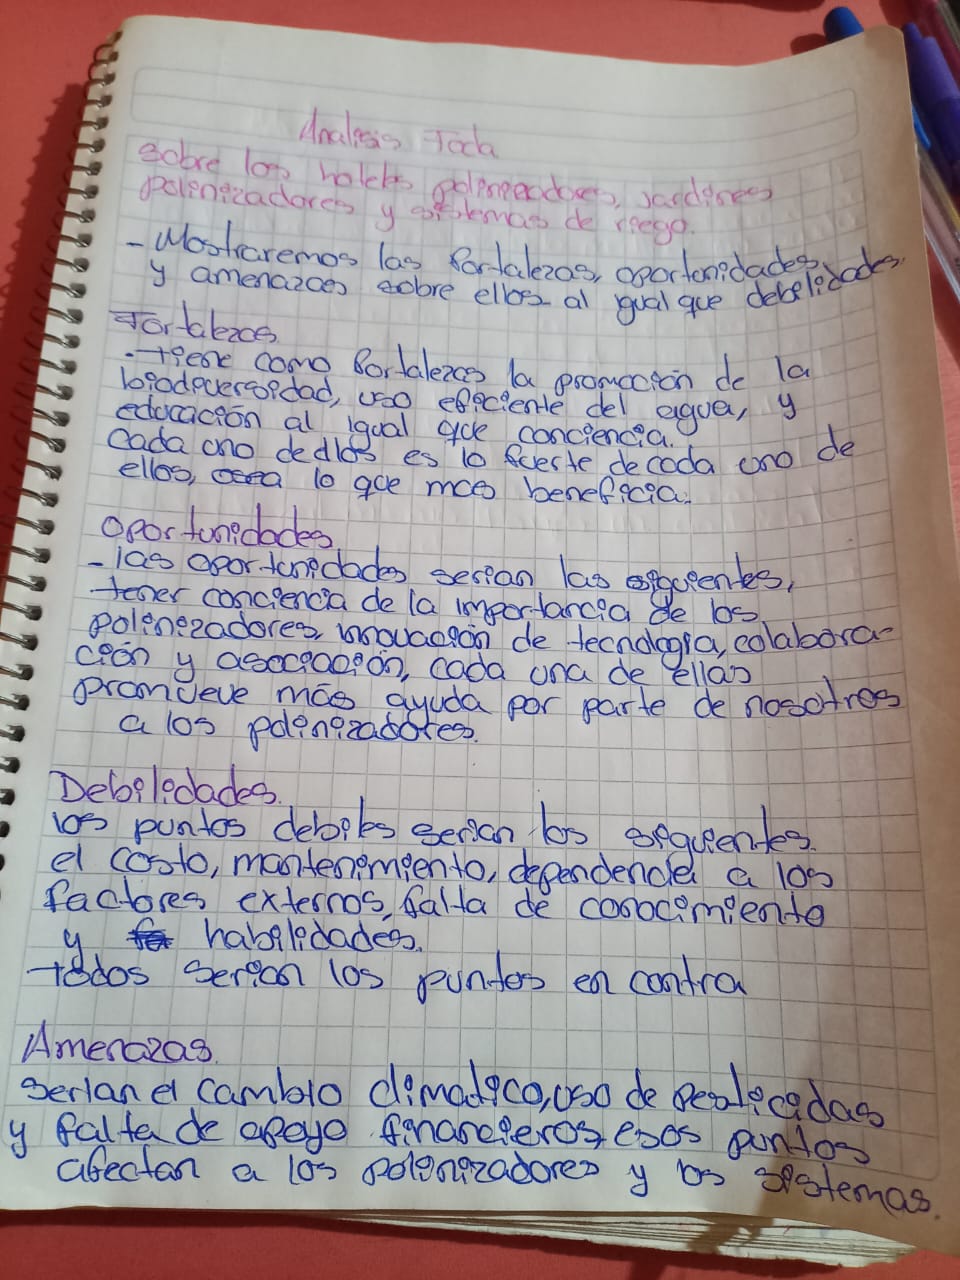 Analisis Foda
sobre los hoteles polinizadores, jardines
polinizadores y sistemas de riego.
- Mostraremos las fortalezas, oportunidades,
y amenazas sobre ellos al igual que debelidades.
Fortalezas
. tiene como fortalezas la promoción de la
biodiversidad, uso eficiente del agua, y
educación al igual que conciencia.
Cada uno dedllos es lo fuerte de cada uno de
ellos, osea lo que mas beneficia.
Oportunidades
- las oportunidades serian las siguientes,
tener conciencia de la importancia de los
polinizadores, innovación de tecnologia, colabora-
ción y asociación, cada una de ellas
promueve más ayuda por parte de nosotros
a los polinizadores.
Debilidades.
los puntos debiles serian los siguientes.
el costo, mantenimiento, dependencia a los
factores externos, falta de conocimiento
y habilidades.
todos serian los puntos en contra
Amenazas.
serian el cambio climatico, uso de pesticidas
y falta de apoyo financieros, esos puntos
afectan a los polinizadores y los sistemas.